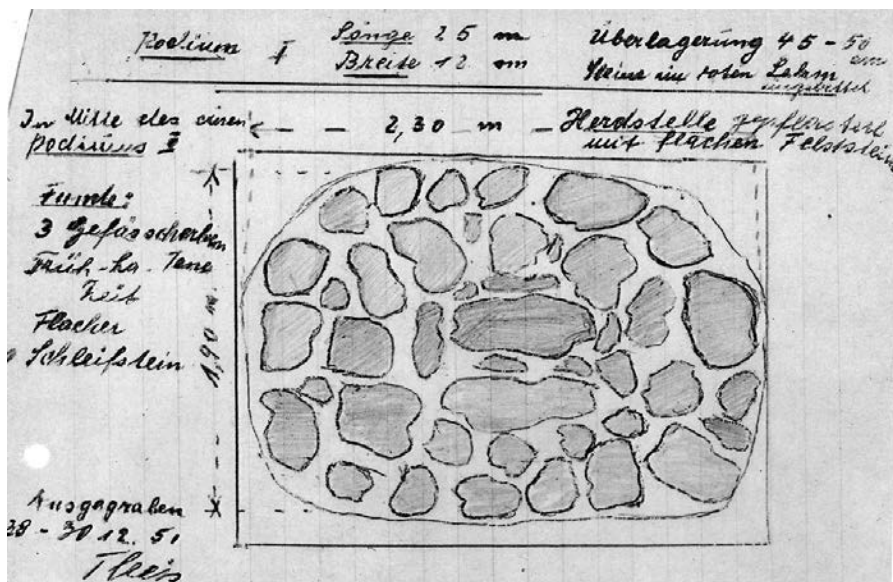 Podium I
Länge 25 m
Breite 12 m
Überlagerung 45 - 50 cm
Steine im roten Lehm
In Mitte des
Podiums I
2,30 m
Herdstelle gepflastert
mit flachen Feldsteine
Funde:
3 Gefässcherben
Früh-La-Tene
Zeit
Flacher
Schleifstein
1,90 m.
Ausgegraben
28 - 30 12. 51
Theis